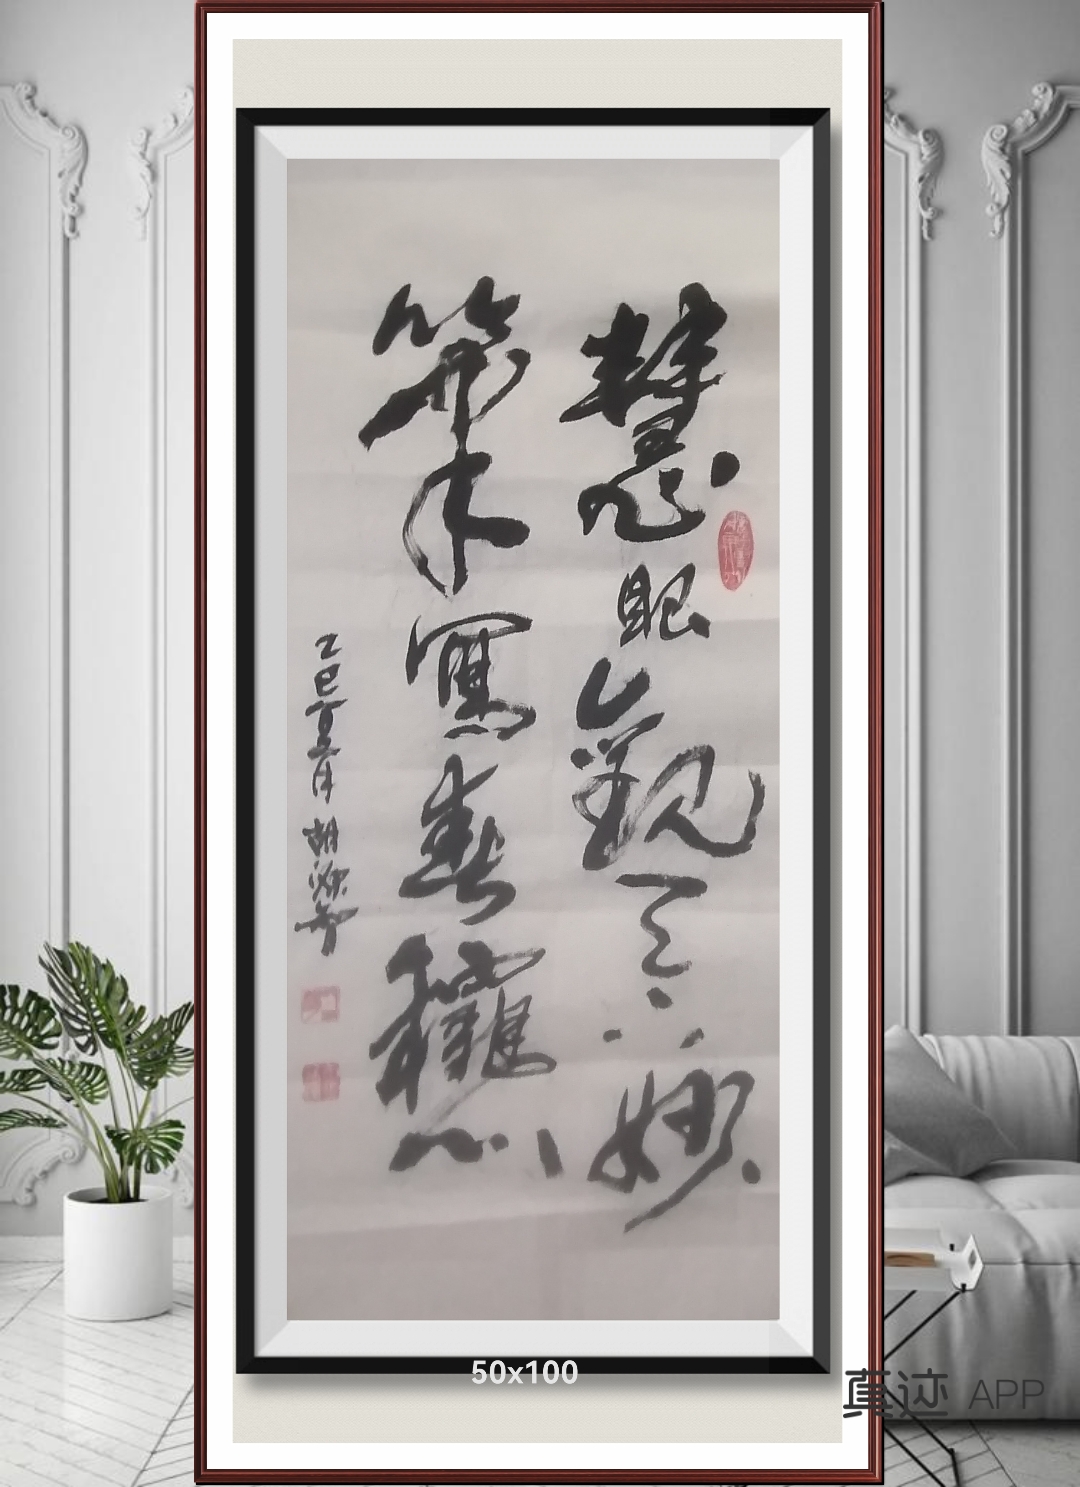 慧眼觀妙
筆寫春龝
乙巳夏月胡
50x100
真迹 APP